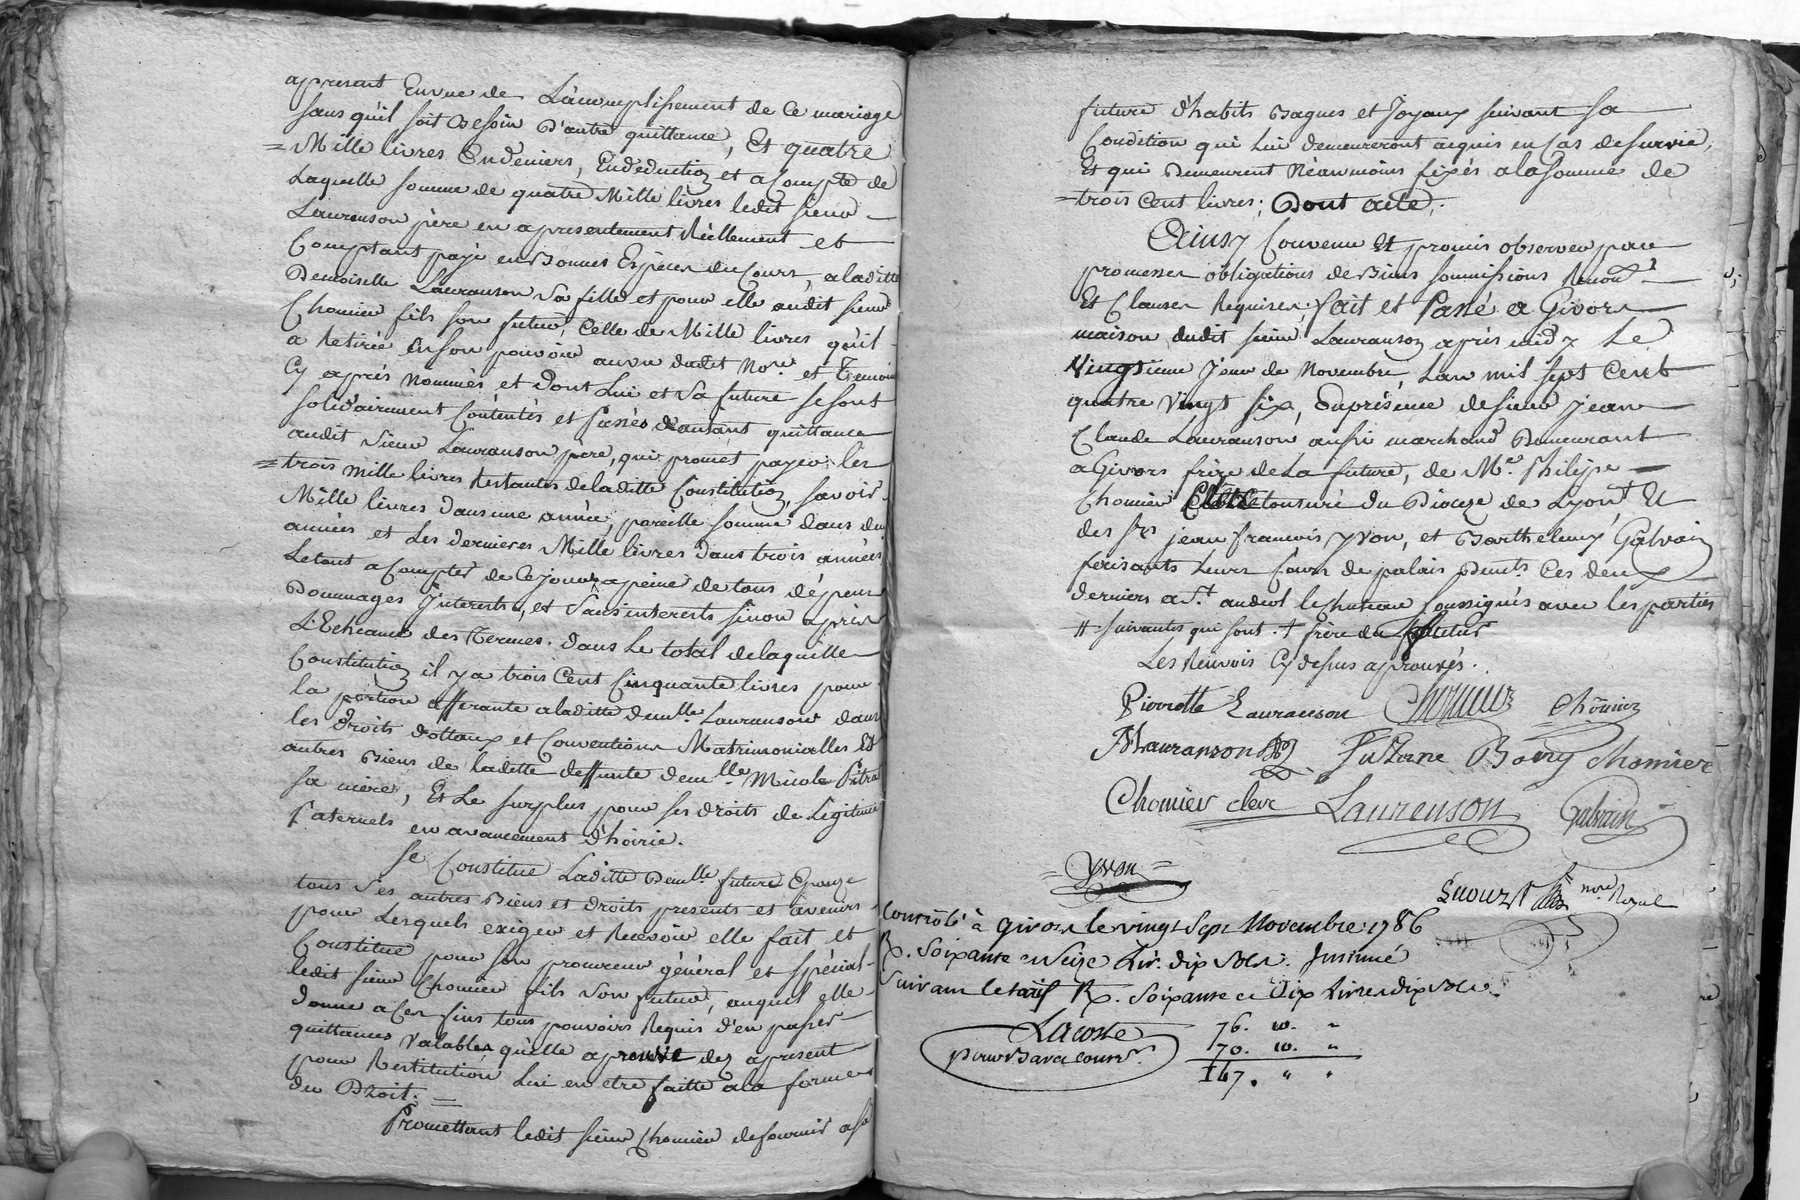 apresent Envue de L'acomplissement de Ce mariage
sans qu'il soit Besoin D'autre quittance, Et quatre
= Mille livres Endeniers, Endéduction et acompte de
Laquelle somme de quatre Mille livres ledit sieur
Lauranson père en a presentement Réellement et
Comptant payé en Bonnes Espèces du Cours, a laditte
Demoiselle Lauranson sa fille et pour elle audit sieur
Chomier fils son futur, Celle de Mille livres qu'il
a Retirée en son pouvoir au vu dudit Nore. et Temoins
Cy après nommés et dont Lui et sa future se sont
solidairement Contentés et passés d'autant quittance
audit sieur Lauranson pere, qui promet payer les
= trois mille livres Restantes de laditte Constitution, savoir
Mille livres Dans une année, pareille somme dans deux
années et Les dernieres Mille livres dans trois années
Le tout a Compter de Ce jour apeine de tous dépens
Dommages Interests, et Sans interests sinon après
L'Echeance des Termes. Dans Le total de laquelle
Constitution il y a trois Cent Cinquante livres pour
la portion afferante a laditte demlle. Lauranson dans
les Droits dottaux et Conventions Matrimonialles Et
autres Biens de laditte deffunte demlle. Nicole Pitra
sa mère, Et Le surplus pour ses droits de Légitime
Paternels en avancement d'hoirie.
Se Constitue Laditte Demlle. future Epouze
tous ses autres Biens et Droits presents et avenirs
pour Lesquels exiger et Recevoir elle fait et
Constitue pour son procureur général et spécial
ledit sieur Chomier fils son futur, auquel elle
donne a Ces fins tous pouvoirs Requis d'en passer
quittances Valables qu'elle aprouve dez apresent
pour Restitution Lui en etre faitte a la forme
du Droit. =
Promettant ledit sieur Chomier de fournir a sa
future d'habits Bagues et Joyaux suivant sa
Condition qui Lui demeureront acquis en Cas de survie,
Et qui Demeurent Néanmoins fixés a la somme de
= trois Cent livres; Dont acte;
Ainsy Convenu Et promis observer par
promesses obligations de Biens soumissions Renon.
Et Clauses Requises; fait et Passé a Givors
maison dudit sieur Lauranson après midy Le
Vingtieme Jour de Novembre, L'an mil sept Cent
quatre Vingt six, En présence de sieur Jean
Claude Lauranson aussi marchand Demeurant
a Givors frère de La future, de Me. Philipe
Chomier Clerc tonsuré du Dioceze de Lyon † Et
des srs. jean francois Yvon, et Barthelemy Galvain
faisants Leurs Cours de palais Demts. Ces deux
derniers a St. andeol le Chateau soussignés avec les parties
# suivantes qui sont. † frère du futur
Les Renvois Cy dessus aprouvés.
Pierrette Lauranson Chomier Chomier
Lauranson Suzanne Bonry Chomier
Chomier clerc Laurenson Galvain
= Yvon =
nore. Royal
Controlé à Givors le vingt Sept Novembre 1786
R. Soixante et Seize Liv. dix Sols. Insinué
Suivant le tarif R. Soixante et dix Livres dix sols.
Lacoste
76. 10. "
70. 10. "
147. " "